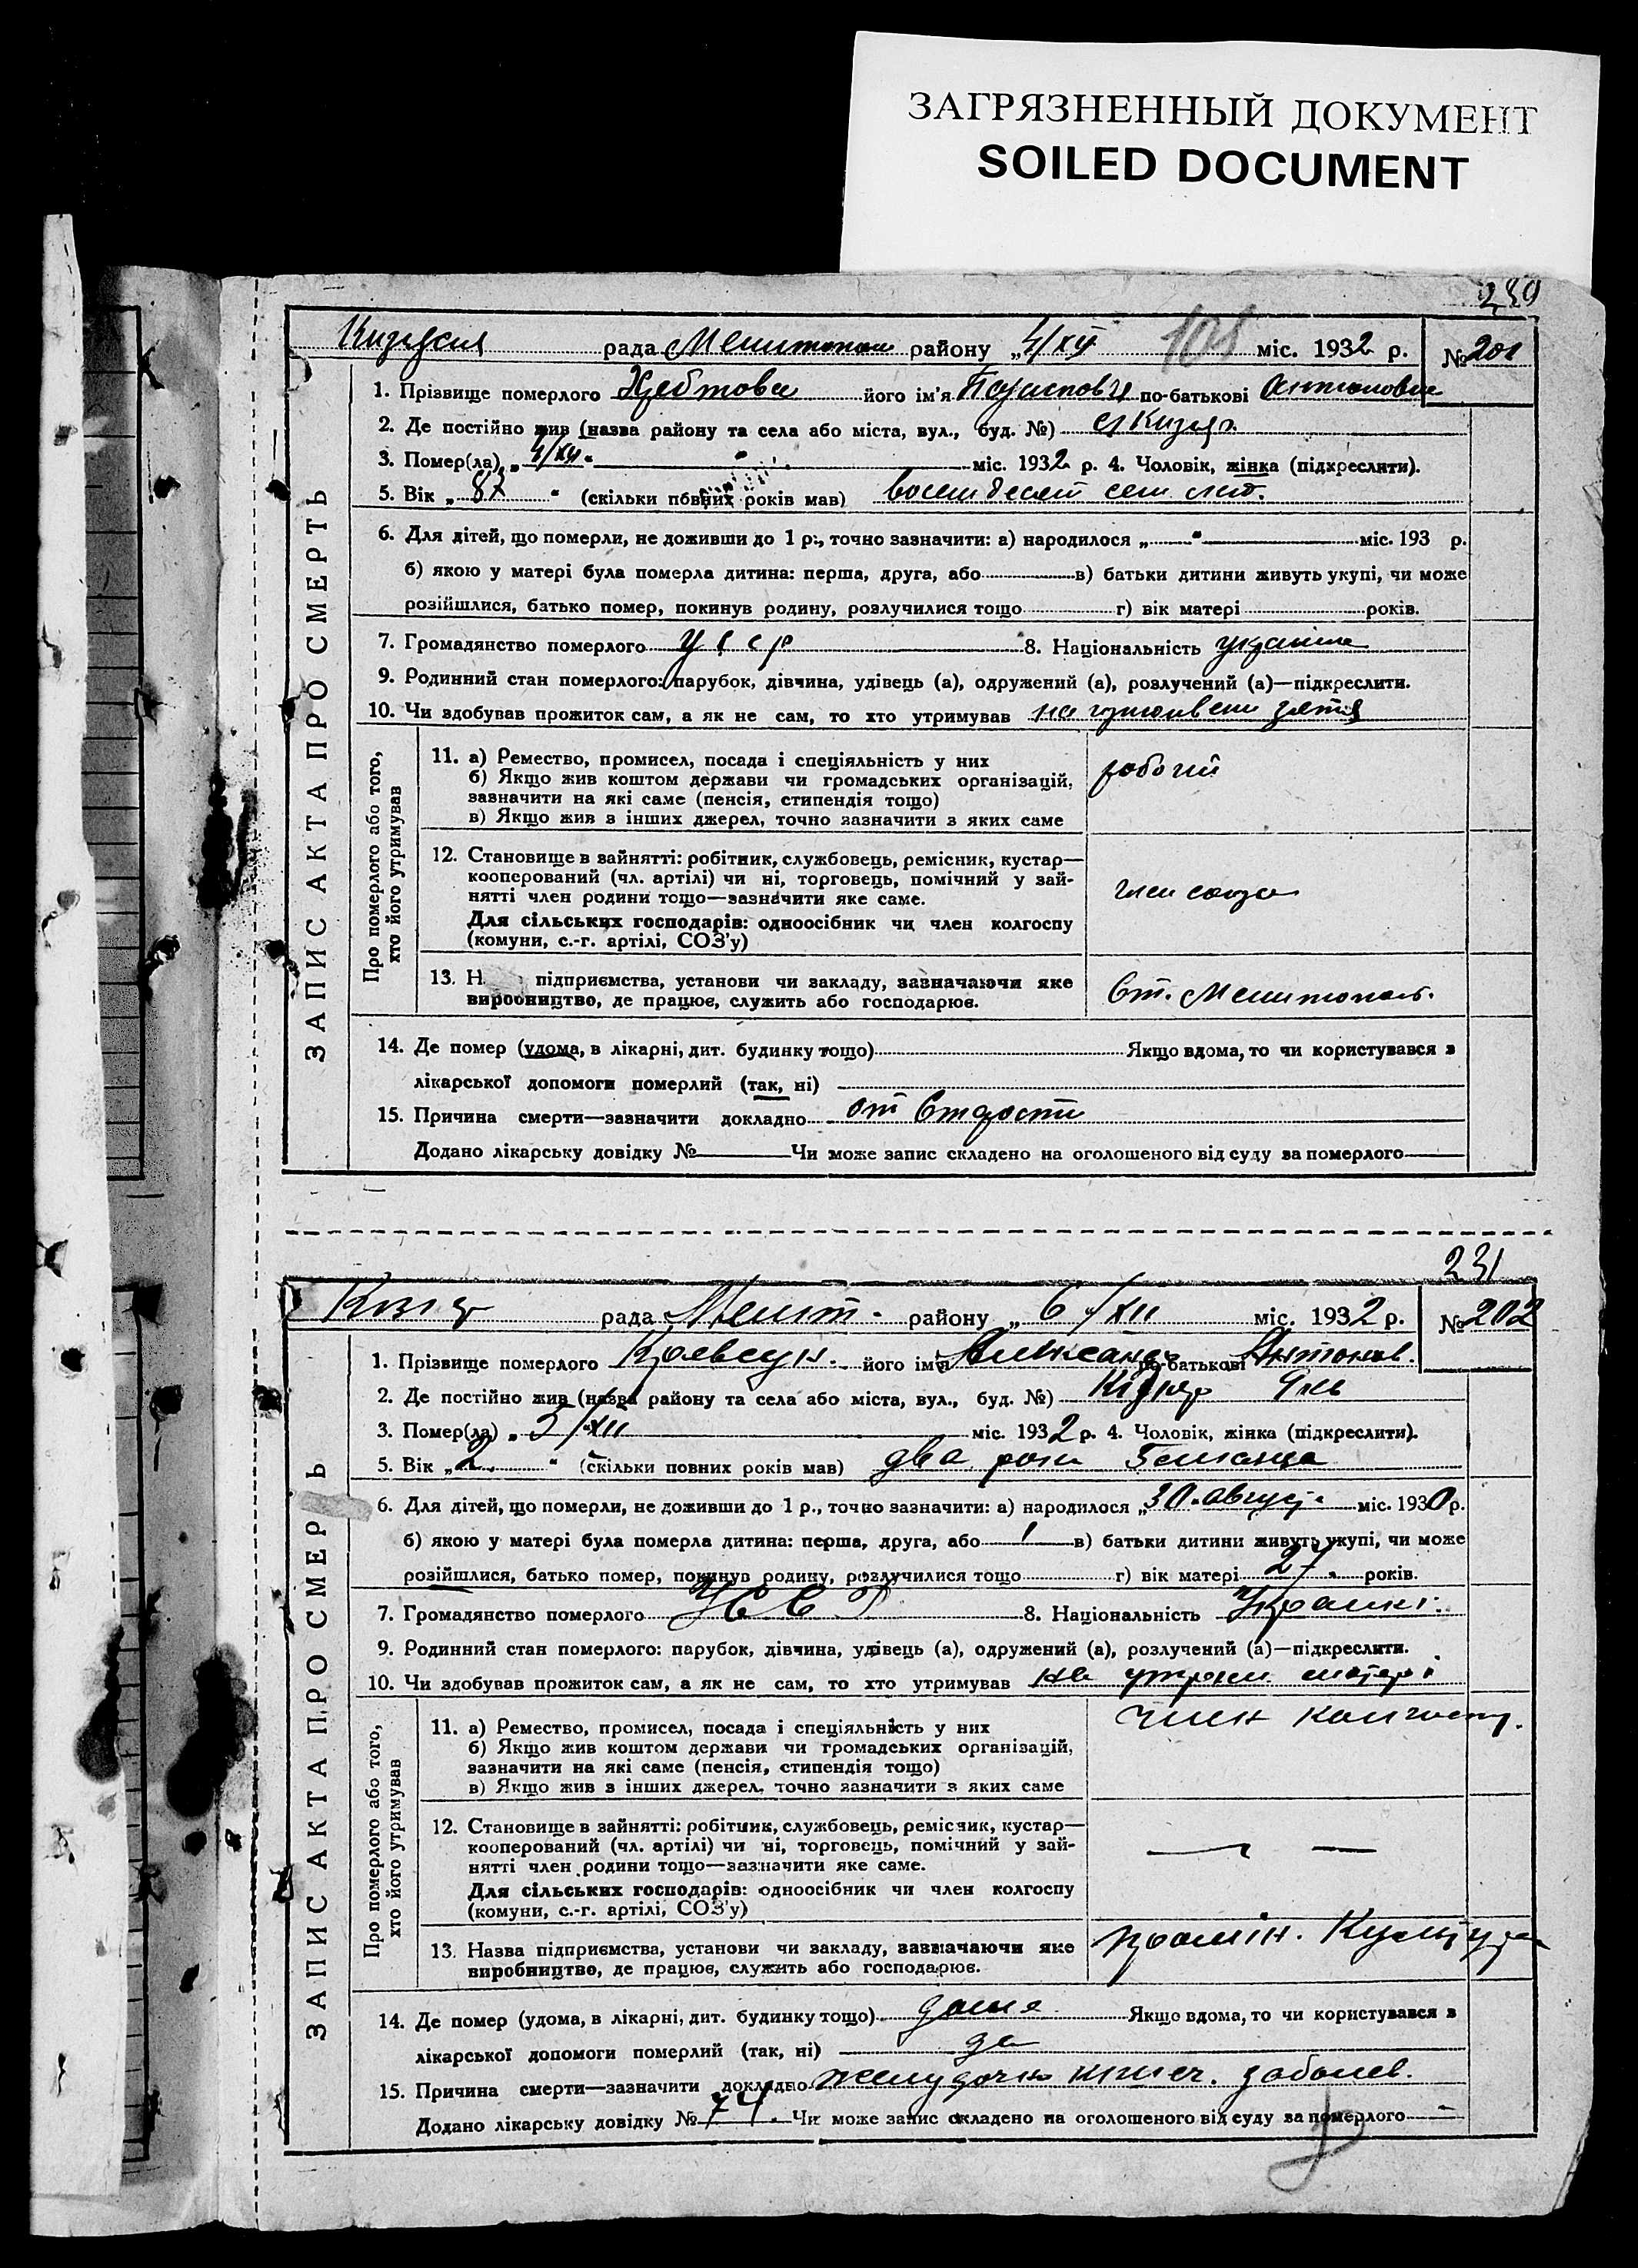 ЗАГРЯЗНЕННЫЙ ДОКУМЕНТ
SOILED DOCUMENT
ЗАПИС АКТА ПРО СМЕРТЬ
рада району „4/XII міс. 1932 р. № 201
1. Прізвище померлого його ім'я по-батькові
2. Де постійно жив (назва району та села або міста, вул., буд. №)
3. Помер(ла) „4/XII“ міс. 1932 р. 4. Чоловік, жінка (підкреслити).
5. Вік „87“ (скільки повних років мав)
6. Для дітей, що померли, не доживши до 1 р., точно зазначити: а) народилося „ “ міс. 193 р.
б) якою у матері була померла дитина: перша, друга, або в) батьки дитини живуть укупі, чи може
розійшлися, батько помер, покинув родину, розлучилися тощо г) вік матері років.
7. Громадянство померлого УССР 8. Національність
9. Родинний стан померлого: парубок, дівчина, удівець (а), одружений (а), розлучений (а)—підкреслити.
10. Чи здобував прожиток сам, а як не сам, то хто утримував зятя
Про померлого або того, хто його утримував
11. а) Ремество, промисел, посада і спеціяльність у них рабочий
б) Якщо жив коштом держави чи громадських організацій,
зазначити на які саме (пенсія, стипендія тощо)
в) Якщо жив з інших джерел, точно зазначити з яких саме
12. Становище в зайнятті: робітник, службовець, ремісник, кустар—
кооперований (чл. артілі) чи ні, торговець, помічний у зай-
нятті член родини тощо—зазначити яке саме. член союза
Для сільських господарів: одноосібник чи член колгоспу
(комуни, с.-г. артілі, СОЗ'у)
13. Н підприємства, установи чи закладу, зазначаючи яке
виробництво, де працює, служить або господарює. Ст. Мелитополь.
14. Де помер (удома, в лікарні, дит. будинку тощо) Якщо вдома, то чи користувався з
лікарської допомоги померлий (так, ні)
15. Причина смерти—зазначити докладно от старости
Додано лікарську довідку № Чи може запис складено на оголошеного від суду за померлого
231
ЗАПИС АКТА ПРО СМЕР Ь
рада Меліт. району „6/XII міс. 1932 р. № 202
1. Прізвище померлого його ім'я Александр по-батькові Антонов.
2. Де постійно жив (назва району та села або міста, вул., буд. №)
3. Помер(ла) „5/XII міс. 1932 р. 4. Чоловік, жінка (підкреслити).
5. Вік „2“ (скільки повних років мав) два роки
6. Для дітей, що померли, не доживши до 1 р., точно зазначити: а) народилося „30 август міс. 1930 р.
б) якою у матері була померла дитина: перша, друга, або в) батьки дитини живуть укупі, чи може
розійшлися, батько помер, покинув родину, розлучилися тощо г) вік матері 27 років.
7. Громадянство померлого УССР 8. Національність Украин.
9. Родинний стан померлого: парубок, дівчина, удівець (а), одружений (а), розлучений (а)—підкреслити.
10. Чи здобував прожиток сам, а як не сам, то хто утримував на утрим. матері
Про померлого або того, хто його утримував
11. а) Ремество, промисел, посада і спеціяльність у них член колгоспу.
б) Якщо жив коштом держави чи громадських організацій,
зазначити на які саме (пенсія, стипендія тощо)
в) Якщо жив з інших джерел, точно зазначити з яких саме
12. Становище в зайнятті: робітник, службовець, ремісник, кустар—
кооперований (чл. артілі) чи ні, торговець, помічний у зай-
нятті член родини тощо—зазначити яке саме.
Для сільських господарів: одноосібник чи член колгоспу
(комуни, с.-г. артілі, СОЗ'у)
13. Назва підприємства, установи чи закладу, зазначаючи яке
виробництво, де працює, служить або господарює.
14. Де помер (удома, в лікарні, дит. будинку тощо) дома Якщо вдома, то чи користувався з
лікарської допомоги померлий (так, ні) да
15. Причина смерти—зазначити докладно желудочно кишеч. заболев.
Додано лікарську довідку № 74. Чи може запис складено на оголошеного від суду за померлого